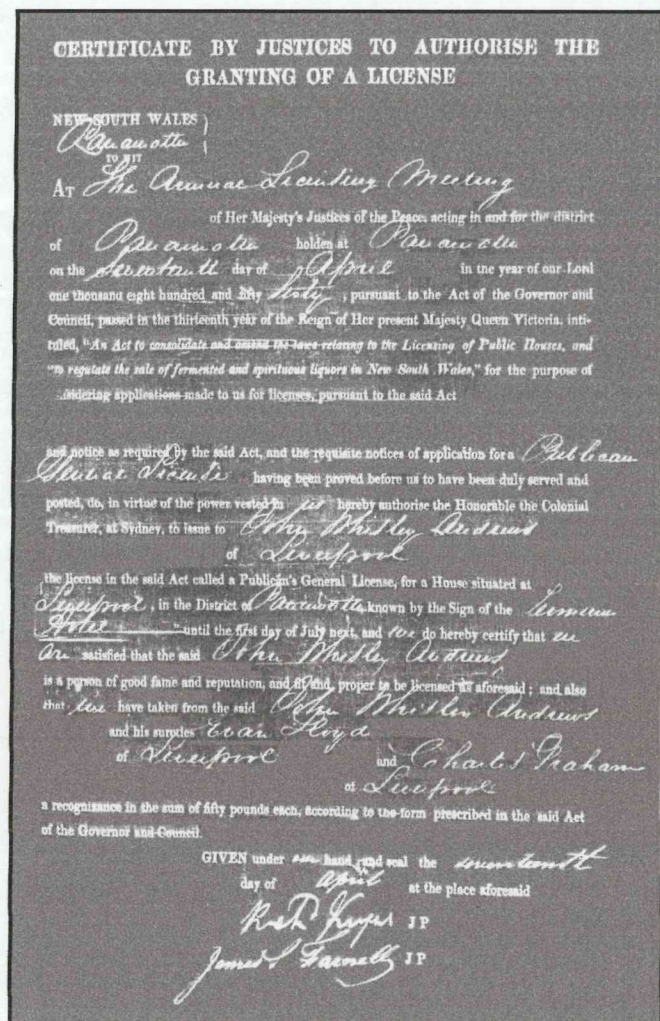 CERTIFICATE BY JUSTICES TO AUTHORISE THE
GRANTING OF A LICENSE
NEW SOUTH WALES
Parramatta
TO WIT
AT The Annual Licensing Meeting
of Her Majesty's Justices of the Peace, acting in and for the district
of Parramatta holden at Parramatta
on the Seventeenth day of April in the year of our Lord
one thousand eight hundred and fifty sixty, pursuant to the Act of the Governor and
Council, passed in the thirteenth year of the Reign of Her present Majesty Queen Victoria, inti-
tuled, "An Act to consolidate and amend the laws relating to the Licensing of Public Houses, and
"to regulate the sale of fermented and spirituous liquors in New South Wales," for the purpose of
sidering applications made to us for licenses, pursuant to the said Act
and notice as required by the said Act, and the requisite notices of application for a Publican
General License having been proved before us to have been duly served and
posted, do, in virtue of the power vested in us hereby authorise the Honorable the Colonial
Treasurer, at Sydney, to issue to John Whistley Andrews
of Liverpool
the license in the said Act called a Publican's General License, for a House situated at
Liverpool, in the District of Parramatta known by the Sign of the
Hotel " until the first day of July next, and we do hereby certify that we
are satisfied that the said John Whistley Andrews
is a person of good fame and reputation, and fit and, proper to be licensed as aforesaid; and also
that we have taken from the said John Whistley Andrews
and his sureties Evan Lloyd
of Liverpool and Charles Graham
of Liverpool
a recognizance in the sum of fifty pounds each, according to the form prescribed in the said Act
of the Governor and Council.
GIVEN under our hand and seal the seventeenth
day of April at the place aforesaid
JP
James S Farnell JP